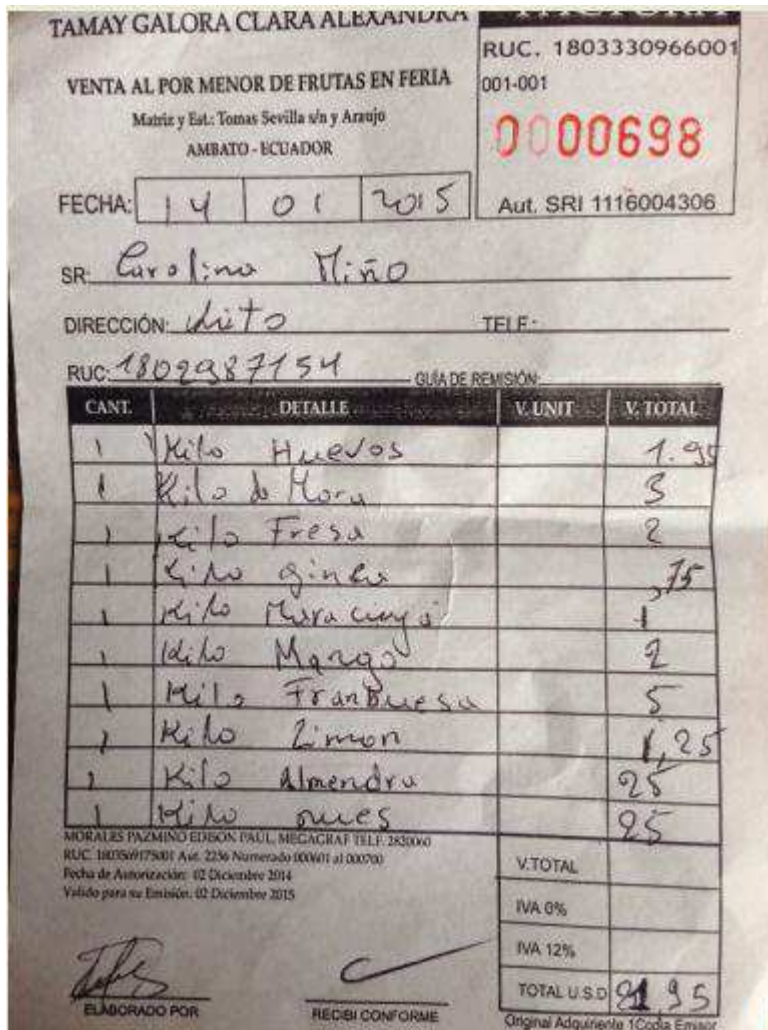 TAMAY GALORA CLARA ALEXANDRA
FACTURA
RUC. 1803330966001
VENTA AL POR MENOR DE FRUTAS EN FERIA
001-001
Matriz y Est.: Tomas Sevilla s/n y Araujo
AMBATO - ECUADOR
0000698
FECHA: 14 01 2015
Aut. SRI 1116004306
SR: Carolina Miño
DIRECCIÓN: TELF.:
RUC: 1802987154 GUÍA DE REMISIÓN:
CANT. DETALLE V. UNIT V. TOTAL
1 Kilo Huevos 1.95
1 Kilo de Mora 3
1 Kilo Fresa 2
1 Kilo ,75
1 Kilo Maracuyá 1
1 Kilo Mango 2
1 Kilo FranBuesa 5
1 Kilo Limon 1,25
1 Kilo Almendra 25
1 Kilo nues 25
MORALES PAZMIÑO EDISON PAUL, MEGAGRAF TELF. 2820060
RUC. 1803569175001 Aut. 2236 Numerado 000601 al 000700
Fecha de Autorización: 02 Diciembre 2014
Valido para su Emisión: 02 Diciembre 2015
V.TOTAL
IVA 0%
IVA 12%
TOTAL U.S.D 91,95
ELABORADO POR RECIBI CONFORME
Original Adquiriente 1Copia Emisor